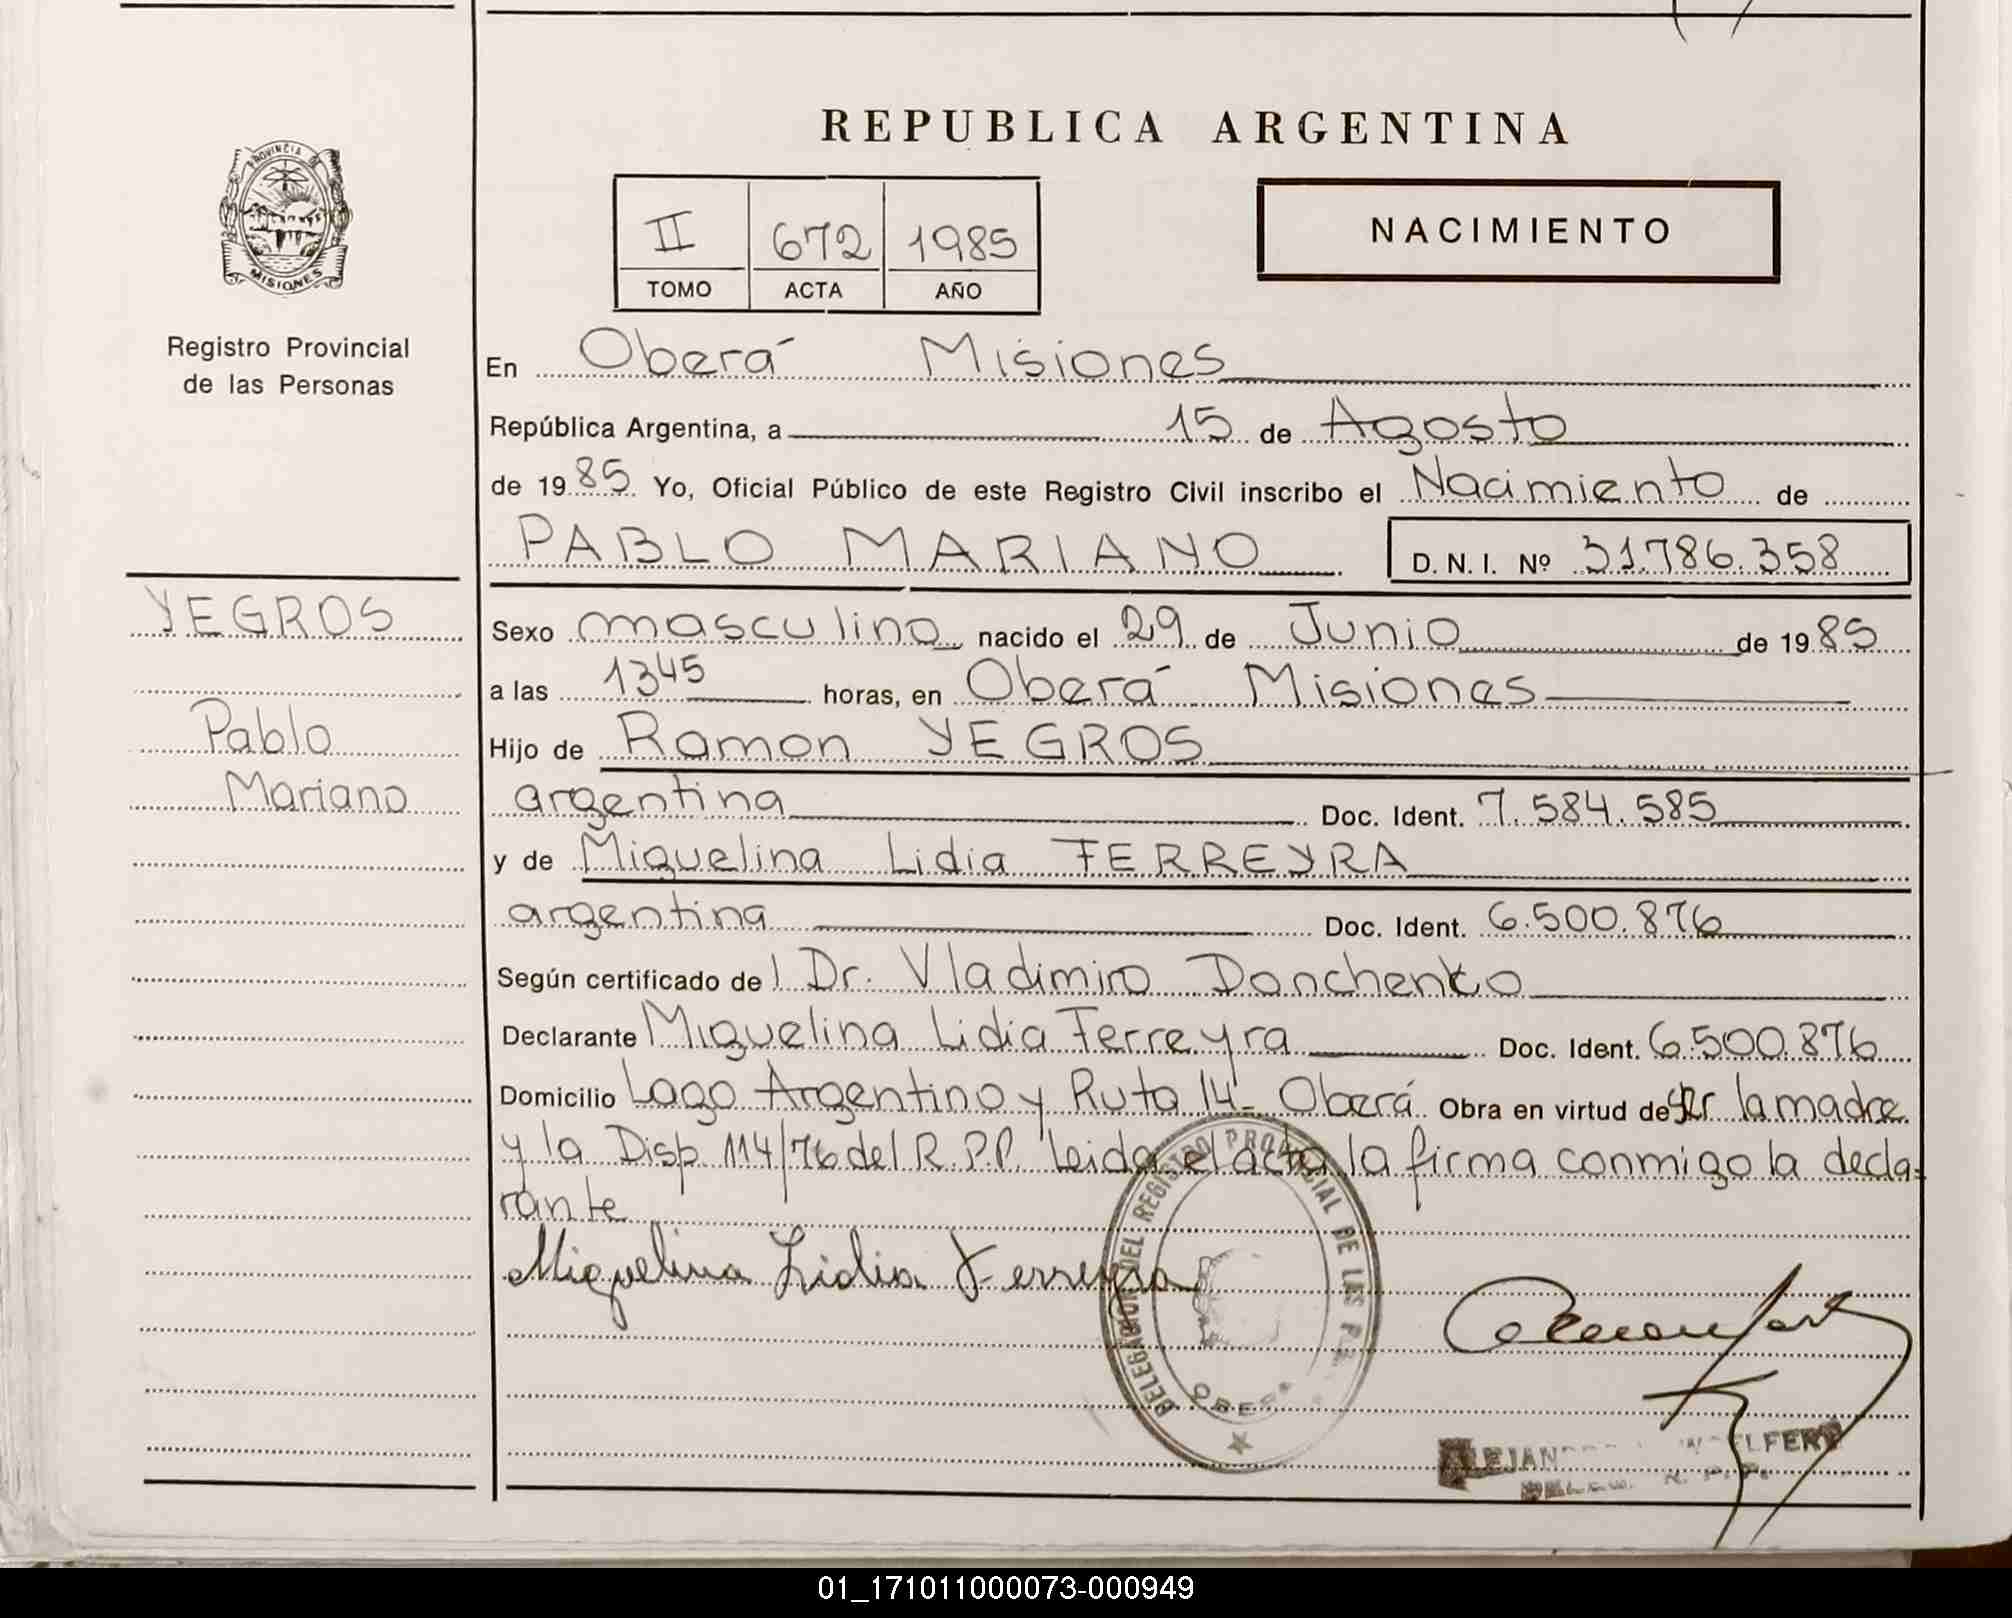 REPUBLICA ARGENTINA
PROVINCIA DE
MISIONES
Registro Provincial
de las Personas
II 672 1985
TOMO ACTA AÑO
NACIMIENTO
En Oberá Misiones
República Argentina, a 15 de Agosto
de 1985 Yo, Oficial Público de este Registro Civil inscribo el Nacimiento de
PABLO MARIANO D. N. I. Nº 31.786.358
YEGROS
Pablo
Mariano
Sexo masculino nacido el 29 de Junio de 1985
a las 1345 horas, en Oberá Misiones
Hijo de Ramon YEGROS
argentina Doc. Ident. 7.584.585
y de Miguelina Lidia FERREYRA
argentina Doc. Ident. 6.500.876
Según certificado de l Dr. Vladimiro Donchenko
Declarante Miguelina Lidia Ferreyra Doc. Ident. 6.500.876
Domicilio Lago Argentino y Ruta 14- Oberá Obra en virtud de ser la madre
y la Disp 114/76 del R.P.P. leida el acta la firma conmigo la decla-
rante
Miguelina Lidia Ferreyra
DELEGACIÓN DEL REGISTRO PROVINCIAL DE LAS
01_171011000073-000949